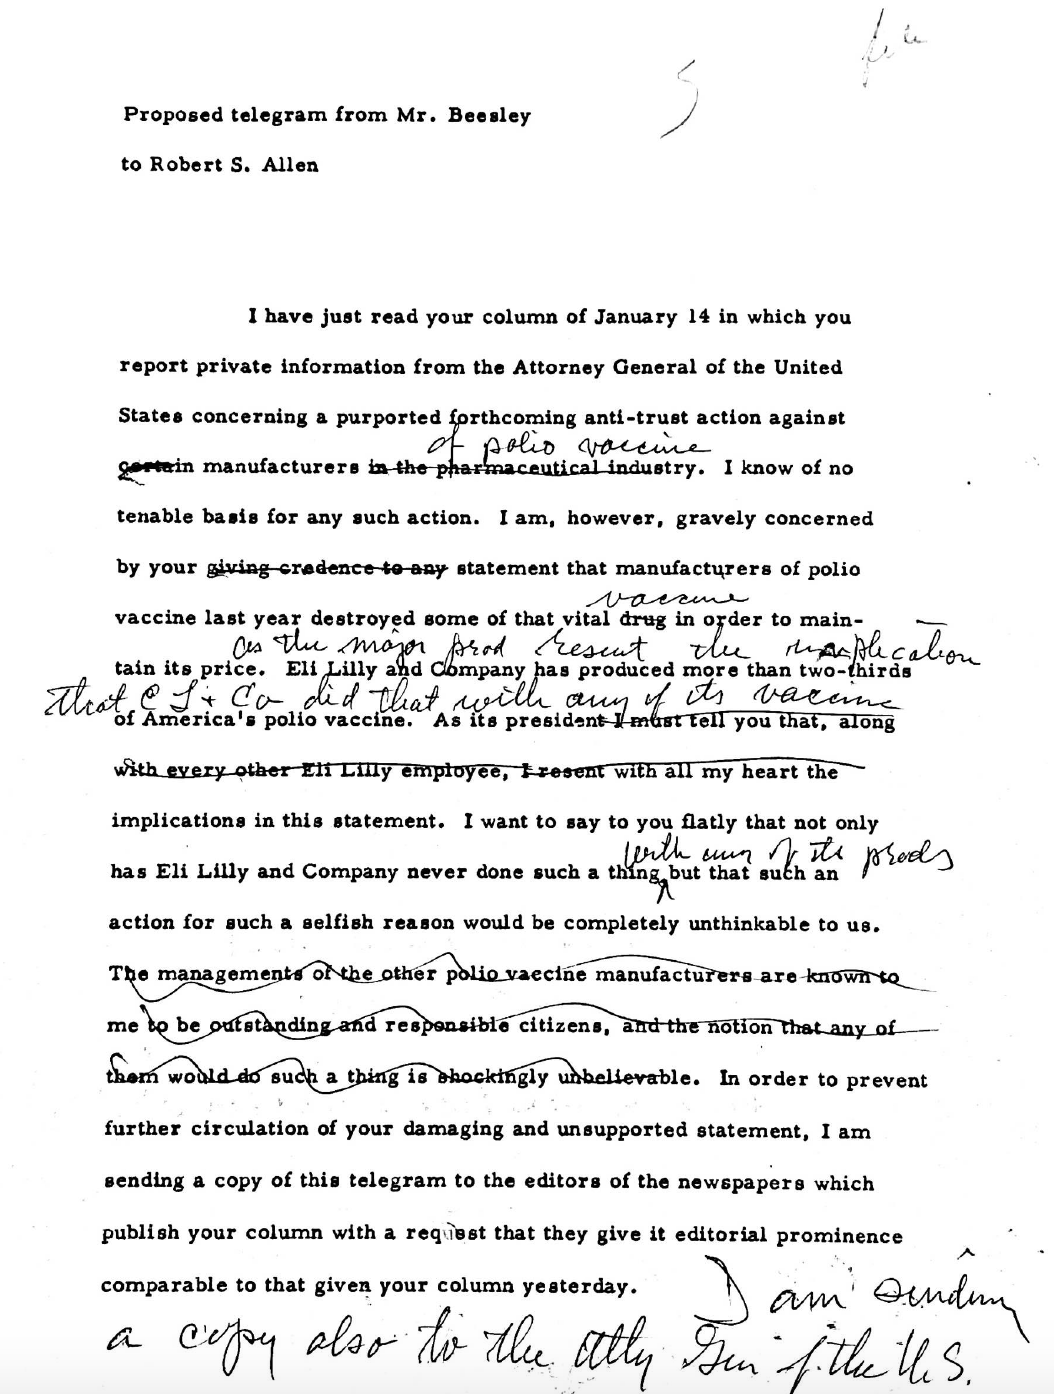 5
file
Proposed telegram from Mr. Beesley
to Robert S. Allen
I have just read your column of January 14 in which you
report private information from the Attorney General of the United
States concerning a purported forthcoming anti-trust action against
of polio vaccine
certain manufacturers in the pharmaceutical industry. I know of no
tenable basis for any such action. I am, however, gravely concerned
by your giving credence to any statement that manufacturers of polio
vaccine
vaccine last year destroyed some of that vital drug in order to main-
as the major prod I resent the implication
tain its price. Eli Lilly and Company has produced more than two-thirds
that E L + Co did that with any of its vaccine
of America's polio vaccine. As its president I must tell you that, along
with every other Eli Lilly employee, I resent with all my heart the
implications in this statement. I want to say to you flatly that not only
with any of its prods
has Eli Lilly and Company never done such a thing but that such an
action for such a selfish reason would be completely unthinkable to us.
The managements of the other polio vaccine manufacturers are known to
me to be outstanding and responsible citizens, and the notion that any of
them would do such a thing is shockingly unbelievable. In order to prevent
further circulation of your damaging and unsupported statement, I am
sending a copy of this telegram to the editors of the newspapers which
publish your column with a request that they give it editorial prominence
comparable to that given your column yesterday. I am sending
a copy also to the Atty Gen of the U.S.